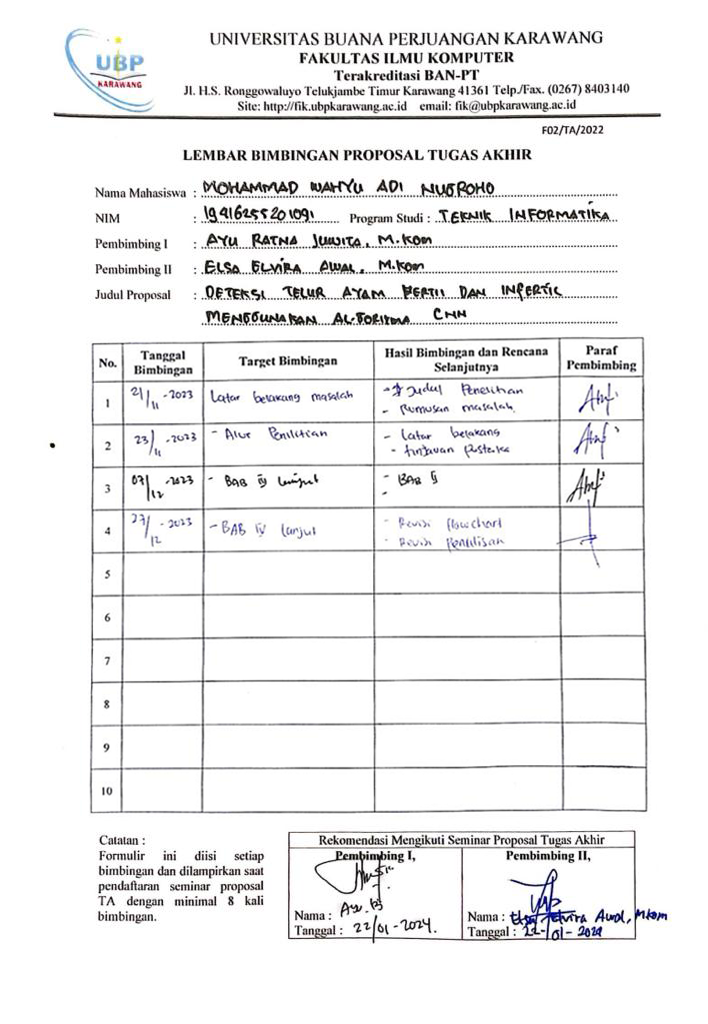 UBP
KARAWANG
UNIVERSITAS BUANA PERJUANGAN KARAWANG
FAKULTAS ILMU KOMPUTER
Terakreditasi BAN-PT
Jl. H.S. Ronggowaluyo Telukjambe Timur Karawang 41361 Telp./Fax. (0267) 8403140
Site: http://fik.ubpkarawang.ac.id email: fik@ubpkarawang.ac.id
F02/TA/2022
LEMBAR BIMBINGAN PROPOSAL TUGAS AKHIR
Nama Mahasiswa : MOHAMMAD WAHYU ADI NUGROHO
NIM : 19416255201091 Program Studi : TEKNIK INFORMATIKA
Pembimbing I : AYU RATNA JUWITA, M.KOM
Pembimbing II : ELSA ELVIRA AWAL, M.KOM
Judul Proposal : DETEKSI TELUR AYAM FERTIL DAN INFERTIL
MENGGUNAKAN ALGORITMA CNN
No. Tanggal Bimbingan Target Bimbingan Hasil Bimbingan dan Rencana Selanjutnya Paraf Pembimbing
1 21/11-2023 Latar belakang masalah - Judul Penelitian
- Rumusan masalah.
2 23/11-2023 - Alur Penilitian - Latar belakang
- tinjauan pustaka
3 07/12-2023 - BAB IV lanjut - BAB
-
4 27/12-2023 - BAB IV lanjut - Revisi flowchart
- Revisi Penulisan
5
6
7
8
9
10
Catatan :
Formulir ini diisi setiap
bimbingan dan dilampirkan saat
pendaftaran seminar proposal
TA dengan minimal 8 kali
bimbingan.
Rekomendasi Mengikuti Seminar Proposal Tugas Akhir
Pembimbing I, Pembimbing II,
Nama : Nama : Elsa Elvira Awal, M.Kom
Tanggal : 22/01-2024. Tanggal : 22-01-2024